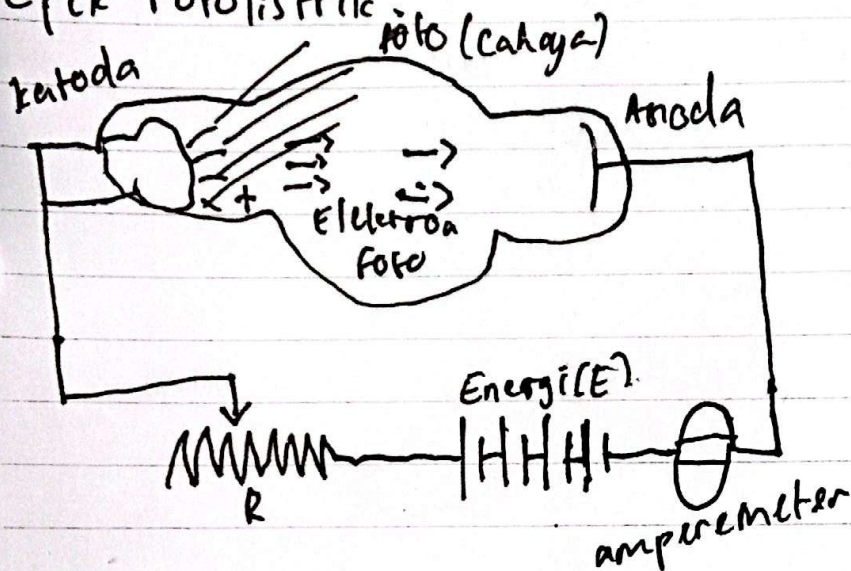 Fotolistrik
foto (Cahaya)
katoda
Anoda
+
Elektron
Foto
Energi(E)
R
amperemeter